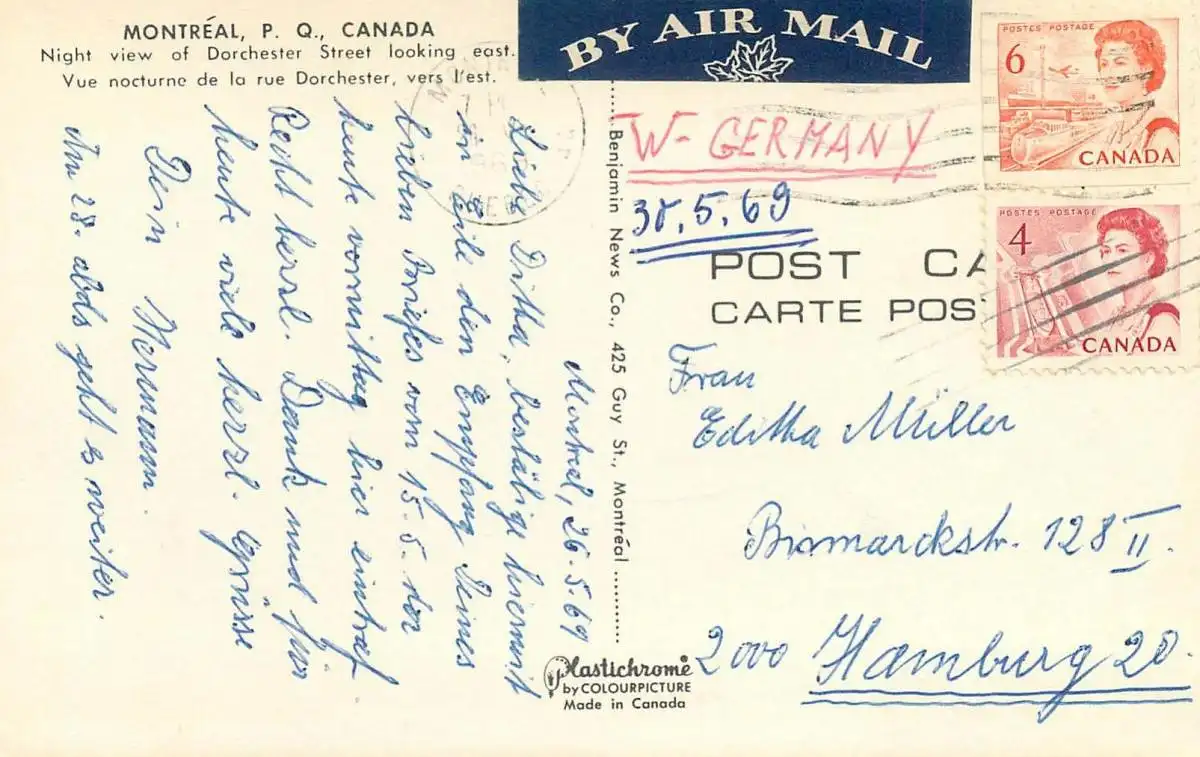 MONTRÉAL, P. Q., CANADA
Night view of Dorchester Street looking east.
Vue nocturne de la rue Dorchester, vers l'est.
BY AIR MAIL
6
POSTES POSTAGE
CANADA
POSTES POSTAGE
4
CANADA
W-GERMANY
30.5.69
POST CA
CARTE POS
Montreal, 26.5.69
Liebe Ditha, bestätige hiermit
in Eile den Empfang Deines
lieben Briefes vom 15.5. der
heute vormittag hier eintraf
Recht herzl. Dank und für
heute viele herzl. Grüsse
Dein Hermann.
Am 28. abds geht es weiter.
Benjamin News Co., 425 Guy St., Montréal
Frau
Editha Müller
Bismarckstr. 128 II.
2000 Hamburg 20.
Plastichrome
by COLOURPICTURE
Made in Canada